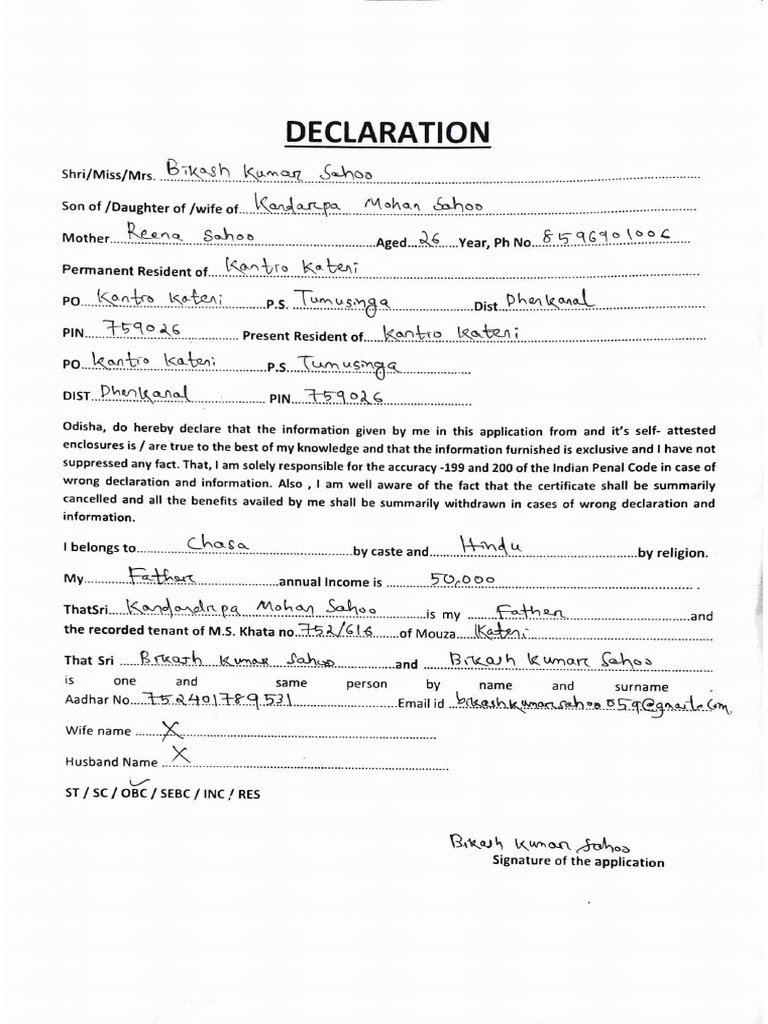 DECLARATION
Shri/Miss/Mrs. Bikash Kumar Sahoo
Son of /Daughter of /wife of Kandarpa Mohan Sahoo
Mother Reena Sahoo Aged 26 Year, Ph No. 8596901006
Permanent Resident of Kantro Kateni
PO Kantro Kateni P.S. Tumusinga Dist. Dhenkanal
PIN 759026 Present Resident of Kantro Kateni
PO Kantro Kateni P.S Tumusinga
DIST Dhenkanal PIN 759026
Odisha, do hereby declare that the information given by me in this application from and it's self- attested
enclosures is / are true to the best of my knowledge and that the information furnished is exclusive and I have not
suppressed any fact. That, I am solely responsible for the accuracy -199 and 200 of the Indian Penal Code in case of
wrong declaration and information. Also , I am well aware of the fact that the certificate shall be summarily
cancelled and all the benefits availed by me shall be summarily withdrawn in cases of wrong declaration and
information.
I belongs to Chasa by caste and Hindu by religion.
My Father annual Income is 50,000
ThatSri Kandandrpa Mohan Sahoo is my Father and
the recorded tenant of M.S. Khata no. 752/616 of Mouza Kateni
That Sri Bikash Kumar Sahoo and Bikash Kumar Sahoo
is one and same person by name and surname .
Aadhar No. 752401789531 Email id bikashkumarsahoo059@gmail.com,
Wife name X
Husband Name X
ST / SC / OBC / SEBC / INC / RES
Bikash Kumar Sahoo
Signature of the application